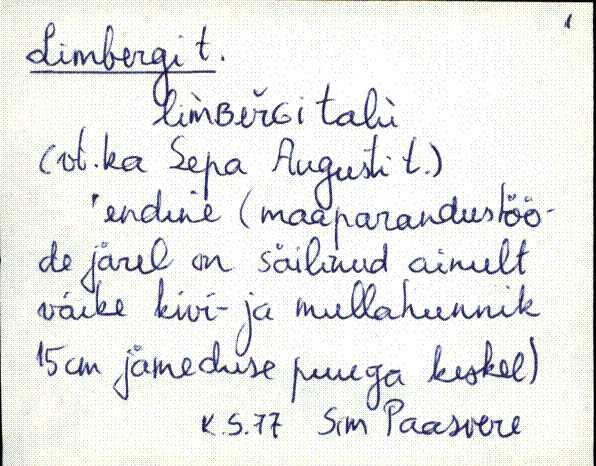 1
Limbergi t.
lìmʙεr̆Gi talù
(vt. ka Sepa Augusti t.)
'endine (maaparandustöö-
de järel on säilinud ainult
väike kivi- ja mullahunnik
15cm jämeduse puuga keskel)
K.S.77 Sim Paasvere